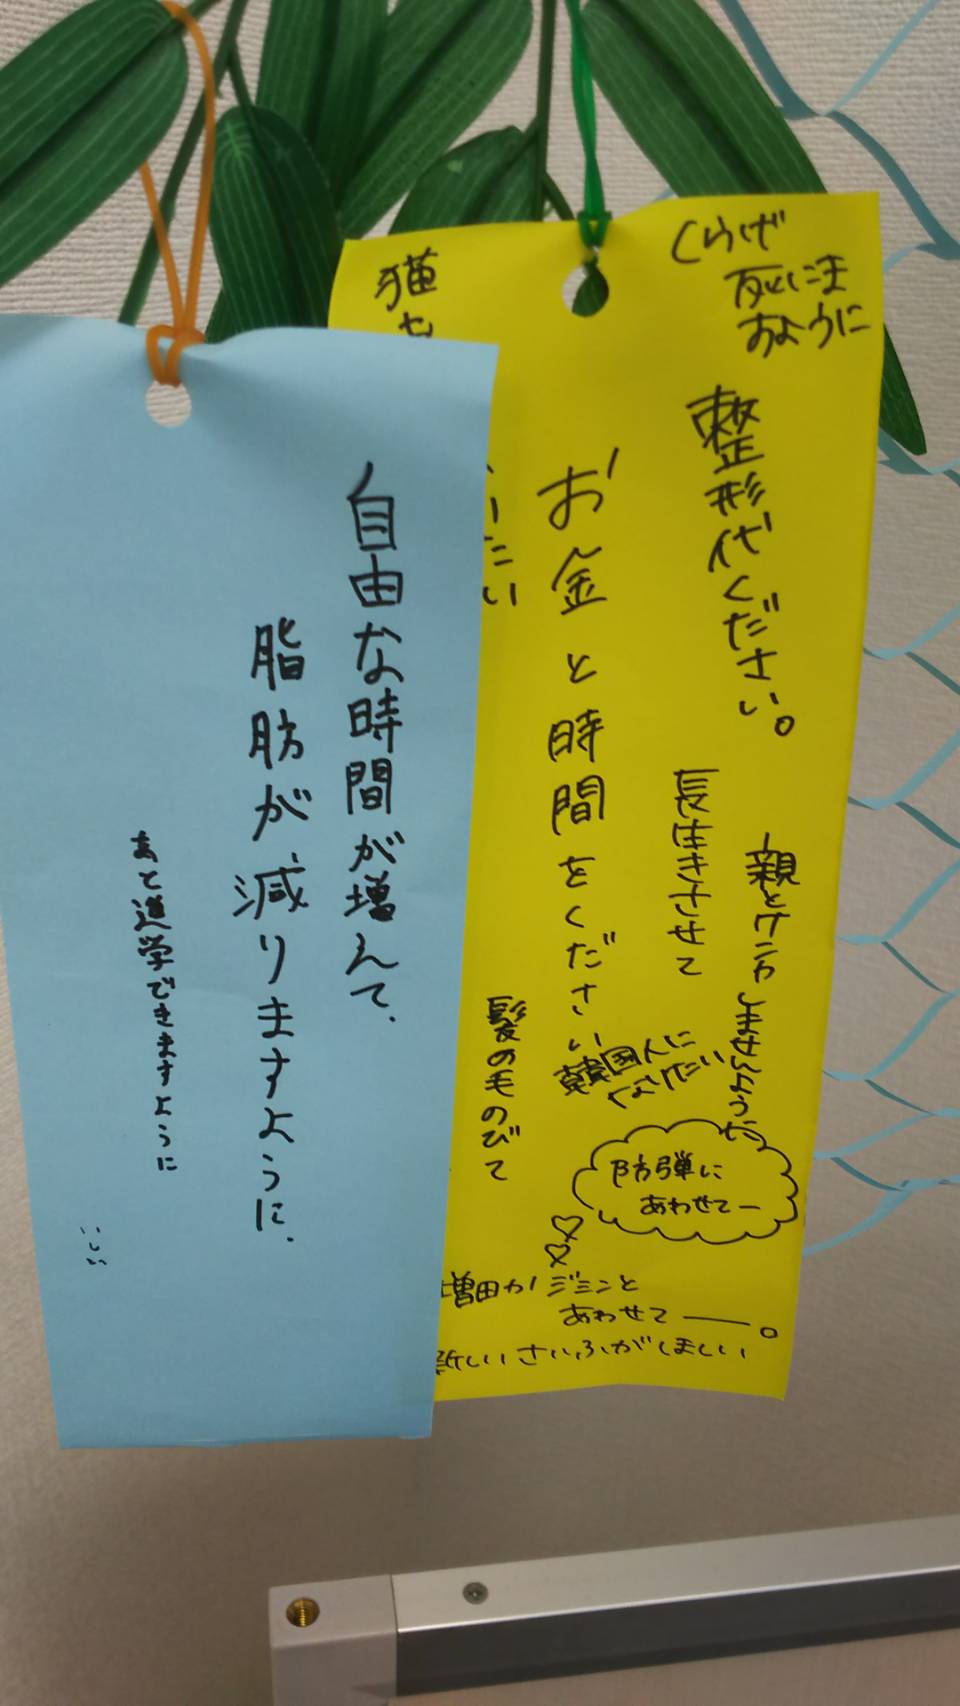 自由な時間が増えて、
脂肪が減りますように、
あと進学できますように
いしい
くらげ
死にま
おように
整形代ください。
親とケンカしませんように
長生きさせて
お金と時間をください
韓国人に
なりたい
髪の毛のびて
猫
いたい
防弾に
あわせてー
増田かジミンと
あわせてー。
新しいさいふがほしい